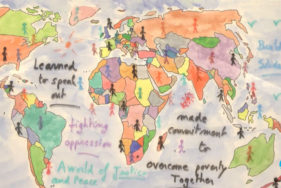 Learned
to speak
out
fighting
oppression
A world of Justice
and Peace
made
commitment
to
overcome poverty
Together
Build